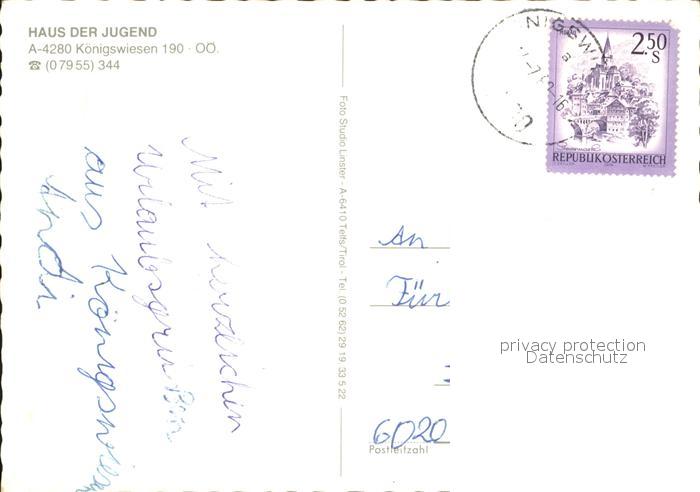 HAUS DER JUGEND
A-4280 Königswiesen 190 · OÖ.
☎ (0 79 55) 344
Mit herzlichen
Urlaubsgrüßen
aus Königswiesen
Andi
Foto Studio Linster - A-6410 Telfs/Tirol - Tel. (0 52 62) 29 19 33 5 22
2.50
S
REPUBLIK ÖSTERREICH
An
Für
6020
Postleitzahl
privacy protection
Datenschutz